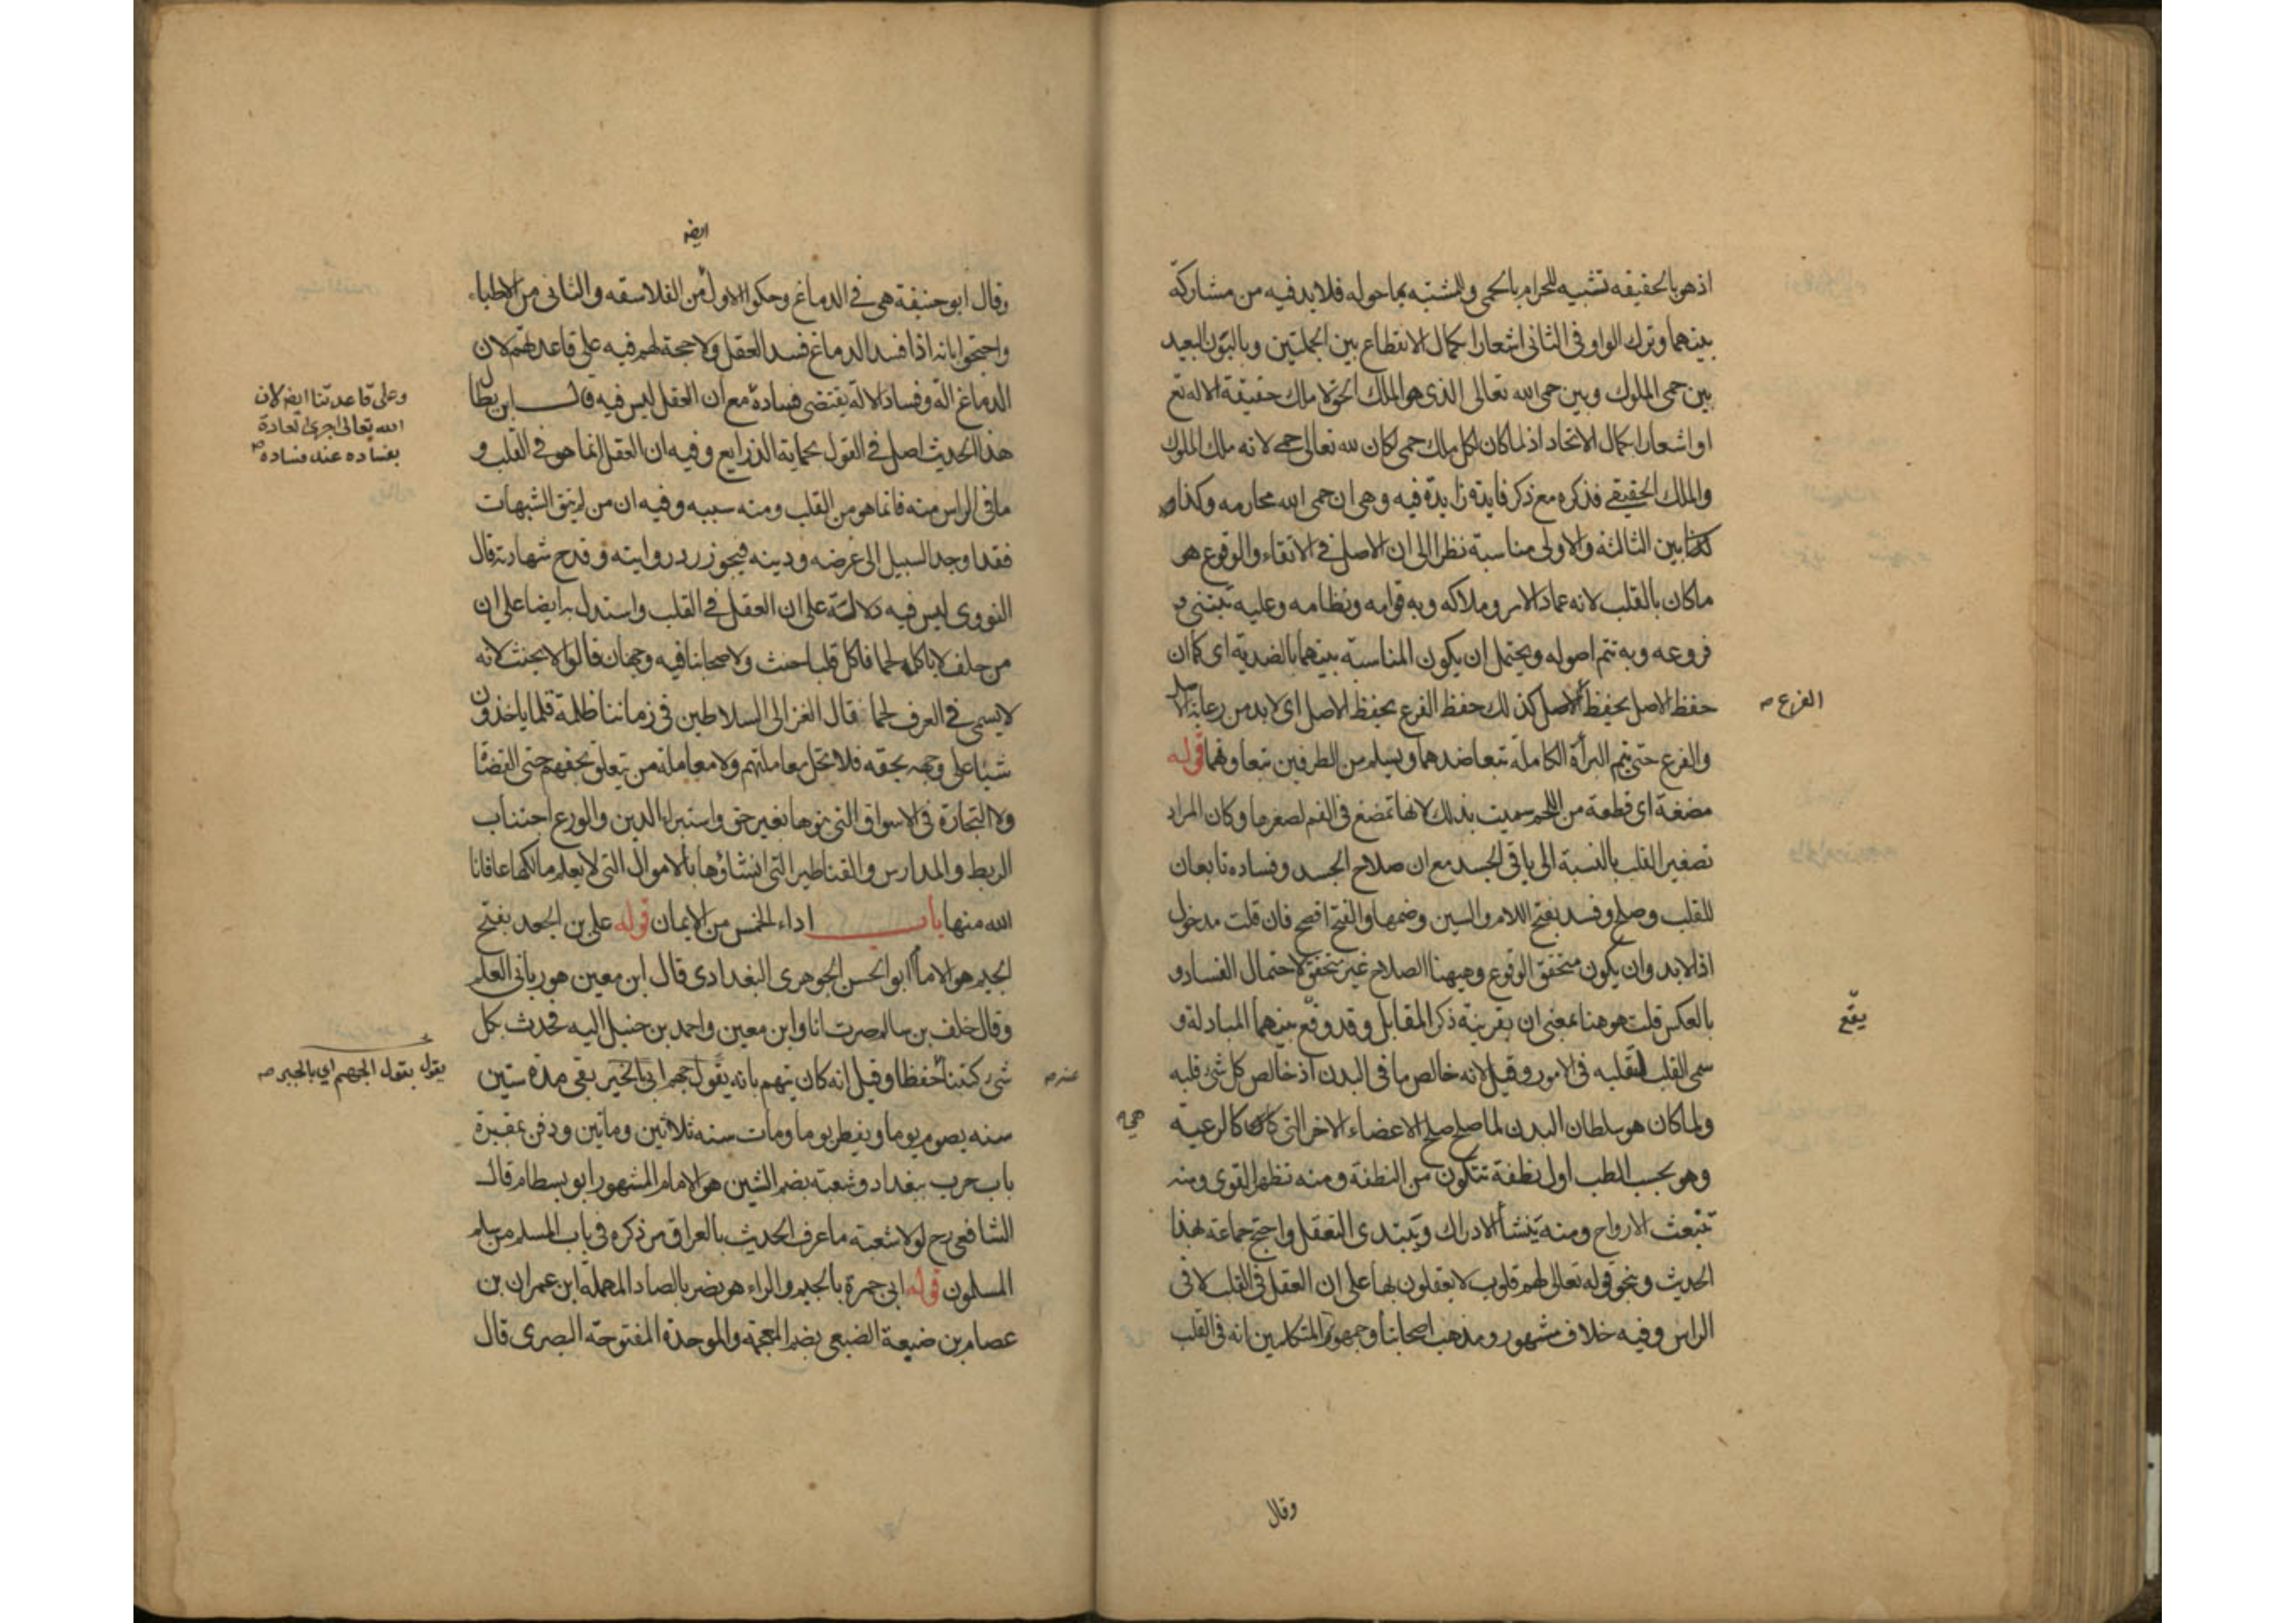 اذ هو بالحقيقة تشبيه للحرام بالحمى والمشتبه بما حوله فلا بد فيه من مشاركة
بينهما وترك الواو في الثانى اشعارا بكمال الانقطاع بين الجملتين وبالبون البعيد
بين حمى الملوك وبين حمى الله تعالى الذى هو الملك الحق لا ملك حقيقة الا له تع
او اشعارا بكمال الاتحاد اذ لما كان لكل ملك حمى لكان لله تعالى حمى لانه ملك الملوك
والملك الحقيقى فذكره مع ذكر فايدة زايدة فيه وهى ان حمى الله محارمه وكذا
بين الثالثة والاولى مناسبة نظرا الى ان الاصل فى الاتقاء والوقوع هو
ماكان بالقلب لانه عماد الامر وملاكه وبه قوامه ونظامه وعليه تبتنى
فروعه وبه تتم اصوله ويحتمل ان يكون المناسبة بينهما بالضدية اى كما ان
حفظ الاصل بحفظ الاصل كذلك حفظ الفرع بحفظ الاصل اى لابد من رعاية الاصل
الفرع صح
والفرع حتى يتم البرأة الكاملة بتعاضدهما ويسلم من الطرفين بتعاونهما قوله
مضغة اى قطعة من اللحم سميت بذلك لانها تمضغ فى الفم لصغرها وكان المراد
تصغير القلب بالنسبة الى باقى الجسد مع ان صلاح الجسد وفساده تابعان
للقلب وصلح وفسد بفتح اللام والسين وضمها والفتح افصح فان قلت مدخول
اذا لابد وان يكون متحقق الوقوع وههنا الصلاح غير متحقق لاحتمال الفساد و
بالعكس قلت هو هنا بمعنى ان بقرينة ذكر المقابل وقد وقع بينهما المبادلة و
يقع
سمى القلب لتقلبه فى الامور وقيل لانه خالص ما فى البدن اذ خالص كل شئ قلبه
ولما كان هو سلطان البدن لما صلح صلح الاعضاء الاخر التى كالرعية
هى
وهو بحسب الطب اول نطفة تتكون من النطفة ومنه تظهر القوى ومنه
تنبعث الارواح ومنه ينشأ الادراك ويبتدى التعقل واحتج جماعة بهذا
الحديث وبنحو قوله تعالى لهم قلوب لا يعقلون بها على ان العقل فى القلب لا فى
الراس وفيه خلاف مشهور ومذهب اصحابنا وجمهور المتكلمين انه فى القلب
وقال
ايضه
وقال ابو حنيفة هى فى الدماغ وحكوا الاول من الفلاسفه والثانى من الاطباء
واحتجوا بانه اذا فسد الدماغ فسد العقل ولا حجة لهم فيه على قاعدتهم لان
الدماغ آلة وفساد الالة يقتضى فسادة مع ان العقل ليس فيه قال ابن بطال
وعلى قاعدتنا ايضه لان
الله تعالى اجرى العادة
بفساده عند فساده صح
هذا الحديث اصل فى القول بحماية الذرايع وفيه ان العقل انما هو فى القلب و
ما فى الراس منه فانما هو من القلب ومنه سببه وفيه ان من لم يتق الشبهات
فقد اوجد السبيل الى عرضه ودينه فيجوز رد روايته وقدح شهادته قال
النووى ليس فيه دلالة على ان العقل فى القلب واستدل به ايضا على ان
من حلف لا ياكل لحما فاكل قلبا حنث ولاصحابنا فيه وجهان قالوا لا يحنث لانه
لا يسمى فى العرف لحما قال الغزالى السلاطين فى زماننا ظلمة قلما ياخذون
شيئا على وجهه بحقه فلا تحل معاملتهم ولا معاملة من يتعلق بحقهم حتى القضاة
ولا التجارة فى الاسواق التى بنوها بغير حق واستبراء الدين والورع اجتناب
الربط والمدارس والقناطير التى انشاؤها بالاموال التى لا يعلم مالكها عافانا
الله منها باب اداء الخمس من الايمان قوله على بن الجعد بفتح
الجيم هو الامام ابو الحسن الجوهرى البغدادى قال ابن معين هو ربانى العلم
وقال خلف بن سالم صرت انا وابن معين واحمد بن حنبل اليه فحدث بكل
شئ كتبنا حفظا وقيل انه كان يتهم بانه يقول بقى مدة ستين
عنه صح
يقول بقول الجهم اى بالجبر صح
سنه يصوم يوما ويفطر يوما ومات سنه ثلاثين وماتين ودفن بمقبرة
باب حرب ببغداد وشعبة بضم الشين هو الامام المشهور ابو بسطام قال
الشافعى رح لولا شعبة ما عرف الحديث بالعراق مر ذكره فى باب المسلم من سلم
المسلمون قوله ابى جمرة بالجيم والراء هو نصر بالصاد المهملة ابن عمران بن
عصام بن ضبيعة الضبعى بضم المعجمة والموحدة المفتوحة البصرى قال